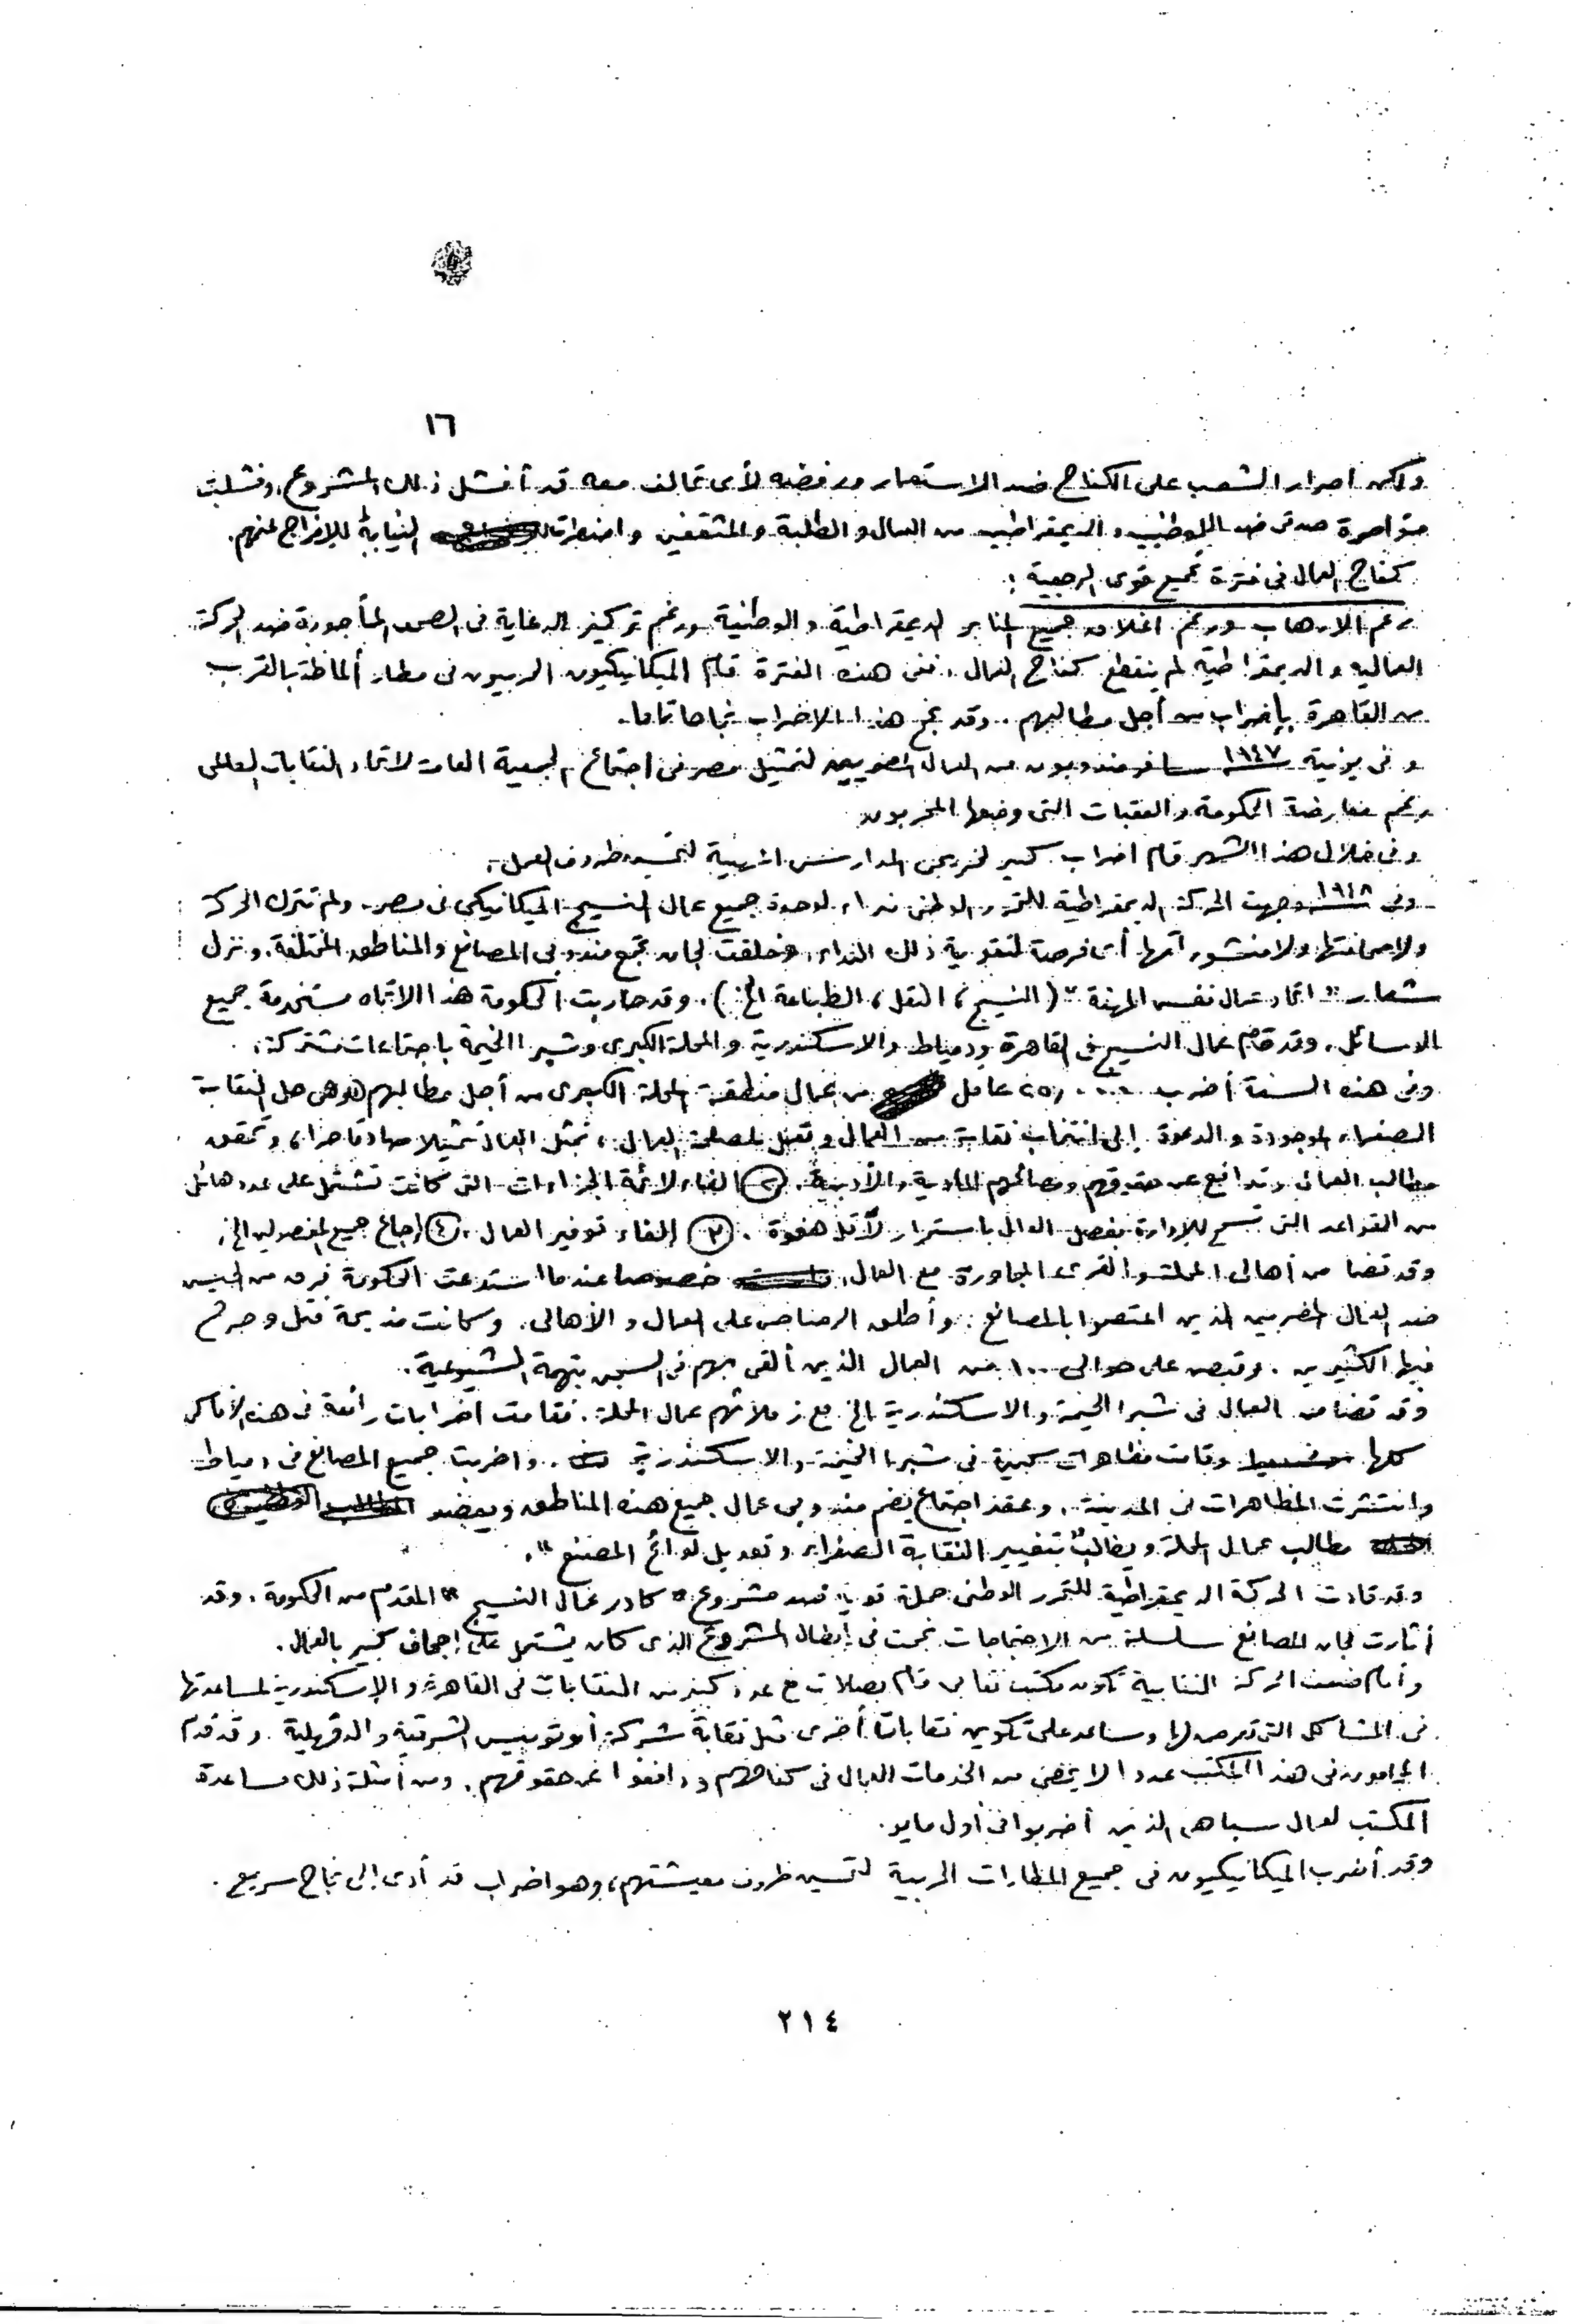 ١٦
ولكن اصرار الشعب على الكفاح ضد الاستعمار ورفضه لأى تحالف معه قد أفشل ذلك المشروع، وفشلت
مؤامرة صدقى ضد الوطنيين والديمقراطيين من العمال والطلبة والمثقفين واضطرت النيابة للافراج عنهم.
كفاح العمال فى فترة تجميع قوى الرجعية :
رغم الارهاب ورغم اغلاق جميع المنابر الديمقراطية والوطنية ورغم تركيز الدعاية فى الصحف المأجورة ضد الحركة
العمالية والديمقراطية لم ينقطع كفاح العمال، ففى هذه الفترة قام الميكانيكيون الحربيون فى مطار ألماظة بالقرب
من القاهرة بإضراب من أجل مطالبهم .. وقد نجح هذا الاضراب نجاحا تاما.
وفى يونية ١٩٤٧ سافر مندوبون من العمال المصريين لتمثيل مصر فى اجتماع الجمعية العامة لاتحاد النقابات العالمى
رغم معارضة الحكومة والعقبات التى وضعها المخربون
وفى خلال هذا الشهر قام اضراب كبير لخريجى المدارس المهنية لتحسين ظروف العمل.
وفى ١٩٤٨ وجهت الحركة الديمقراطية للتحرر الوطنى نداء لوحدة جميع عمال النسيج الميكانيكى فى مصر. ولم تترك الحركة
ولا صحافتها ولا منشوراتها أى فرصة لتقوية ذلك النداء، وخلقت لجان تجمع مندوبى المصانع والمناطق المختلفة. ونزل
شعار "اتحاد عمال نفس المهنة" (النسيج، النقل، الطباعة الخ). وقد حاربت الحكومة هذا الاتجاه مستخدمة جميع
الوسائل. وقد قام عمال النسيج فى القاهرة ودمياط والاسكندرية والمحلة الكبرى وشبرا الخيمة باجتماعات مشتركة.
وفى هذه السنة أضرب ٢٥,٠٠٠ عامل من عمال منطقة المحلة الكبرى من أجل مطالبهم وهى حل النقابة
الصفراء الموجودة والدعوة إلى انتخاب نقابة من العمال وتعمل لمصلحة العمال، تمثل العمال تمثيلا صادقا حرا، وتحقق
مطالب العمال وتدافع عن حقوقهم ومصالحهم المادية والأدبية. (٢) الغاء لائمة الجزاءات التى كانت تشتمل على عدد هائل
من القواعد التى تسمح للإدارة بفصل العمال باستمرار لأقل هفوة. (٣) إلغاء توفير العمال. (٤) إرجاع جميع المفصولين الخ.
وقد تضامن أهالى المحلة والقرى المجاورة مع العمال، خصوصا عندما استدعت الحكومة فرق من الجيش
ضد العمال المضربين الذين اعتصموا بالمصانع. وأطلق الرصاص على العمال والأهالى. وكانت مذبحة قتل وجرح
فيها الكثيرين. وقبض على حوالى ١٠٠ من العمال الذين ألقى بهم فى السجن بتهمة الشيوعية.
وقد تضامن العمال فى شبرا الخيمة والاسكندرية الخ مع زملائهم عمال المحلة. فقامت اضرابات رائعة فى هذه الأماكن
كلها وقامت مظاهرات كبيرة فى شبرا الخيمة والاسكندرية. واضربت جميع المصانع فى دمياط
وانتشرت المظاهرات فى المدينة. وعقد اجتماع يضم مندوبى عمال جميع هذه المناطق ويعضد
مطالب عمال المحلة ويطالب بتغيير النقابة الصفراء وتعديل لوائح المصنع".
وقد قادت الحركة الديمقراطية للتحرر الوطنى حملة قوية ضد مشروع "كادر عمال النسيج" المقدم من الحكومة. وقد
أثارت لجان المصانع سلسلة من الاحتجاجات نجحت فى إبطال المشروع الذى كان يشتمل على إجحاف كبير بالعمال.
وأمام ضعف الحركة النقابية تكون مكتب نقابى قام بصلات مع عدد كبير من النقابات فى القاهرة والإسكندرية لمساعدتها
فى المشاكل التى تعرض لها وساعد على تكوين نقابات أخرى مثل نقابة شركة أوتوبيس الشرقية والدقهلية. وقد قدم
المحامون فى هذا المكتب عددا لا يحصى من الخدمات للعمال فى كفاحهم ودافعوا عن حقوقهم. ومن أمثلة ذلك مساعدة
المكتب لعمال سباهى الذين أضربوا فى أول مايو.
وقد أضرب الميكانيكيون فى جميع المطارات الحربية لتحسين ظروف معيشتهم، وهو اضراب قد أدى إلى نجاح سريع.
٢١٤